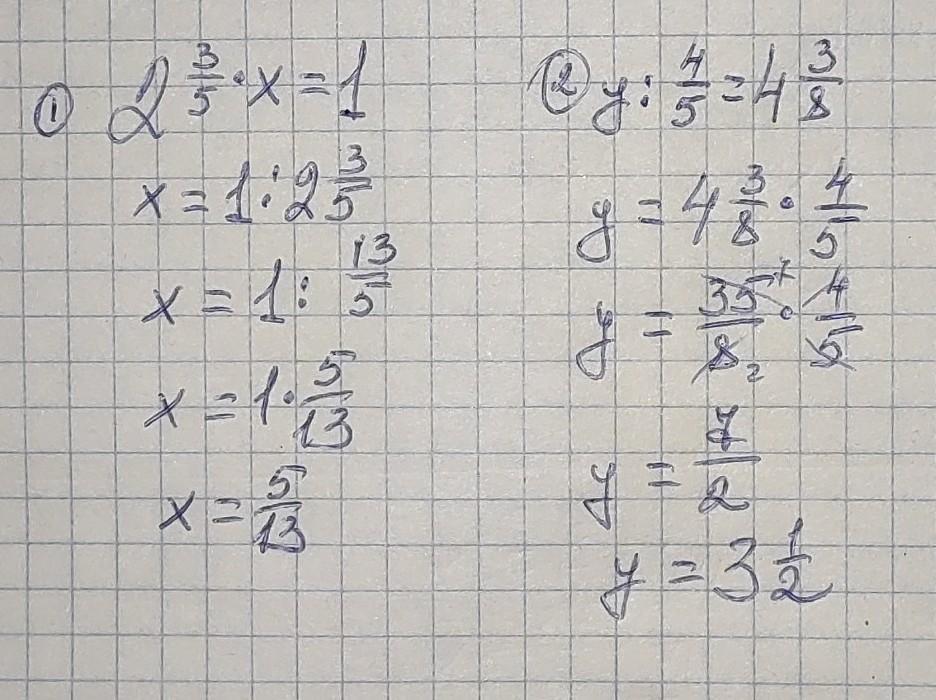 ① 2 3/5 · x = 1
x = 1 : 2 3/5
x = 1 : 13/5
x = 1 · 5/13
x = 5/13
② y : 4/5 = 4 3/8
y = 4 3/8 · 4/5
y = 35 7/8 2 · 4/5
y = 7/2
y = 3 1/2